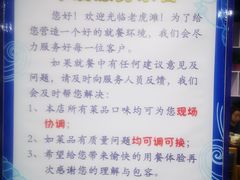 您好！欢迎光临老虎滩！为了给
您营造一个好的就餐环境，我们会尽
力服务好每一位客户。
如果就餐中有任何建议意见及
问题，请及时向服务人员反馈，我们
会及时帮您解决：
1、本店所有菜品口味均可为您现场
协调；
2、如菜品有质量问题均可调可换；
3、希望给您带来愉快的用餐体验再
次感谢您的理解与包容。